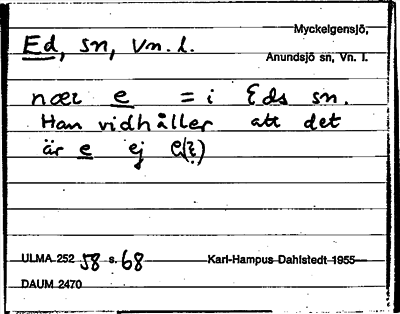 Myckelgensjö,
Ed, sn, Vn. l.
Anundsjö sn, Vn. l.
nær e = i Eds sn.
Han vidhåller att det
är e ej
ULMA 252 58 s. 68 Karl-Hampus Dahlstedt 1955
DAUM 2470